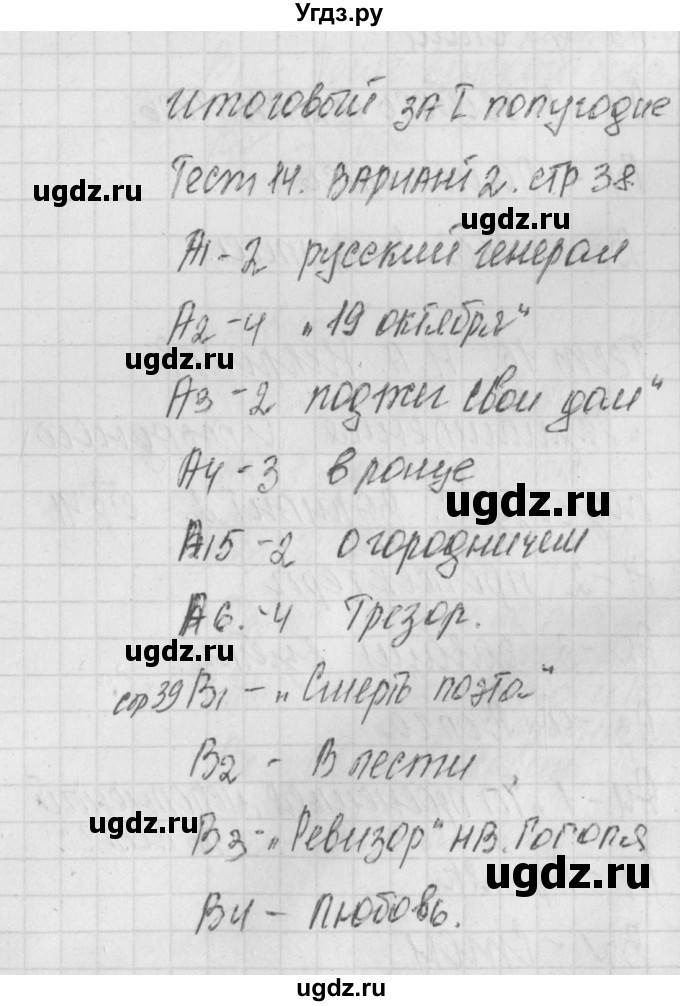 Угдз.ру
Итоговый за I полугодие
Тест 14. Вариант 2. стр 38
ugdz.ru
ugdz.ru
А1-2 русский генерал
А2-4 „19 октября“
ugdz.ru
А3-2 поджег свой дом“
А4-3 в ронце
ugdz.ru
А15-2 о городничем
А6.-4 Трезор.
ugdz.ru
стр 39 В1 - „Смерть поэта“
В2 - В лести
ugdz.ru
В3-„Ревизор“ Н.В. Гоголя
ugdz.ru
В4 - Любовь.
Угдз.ру